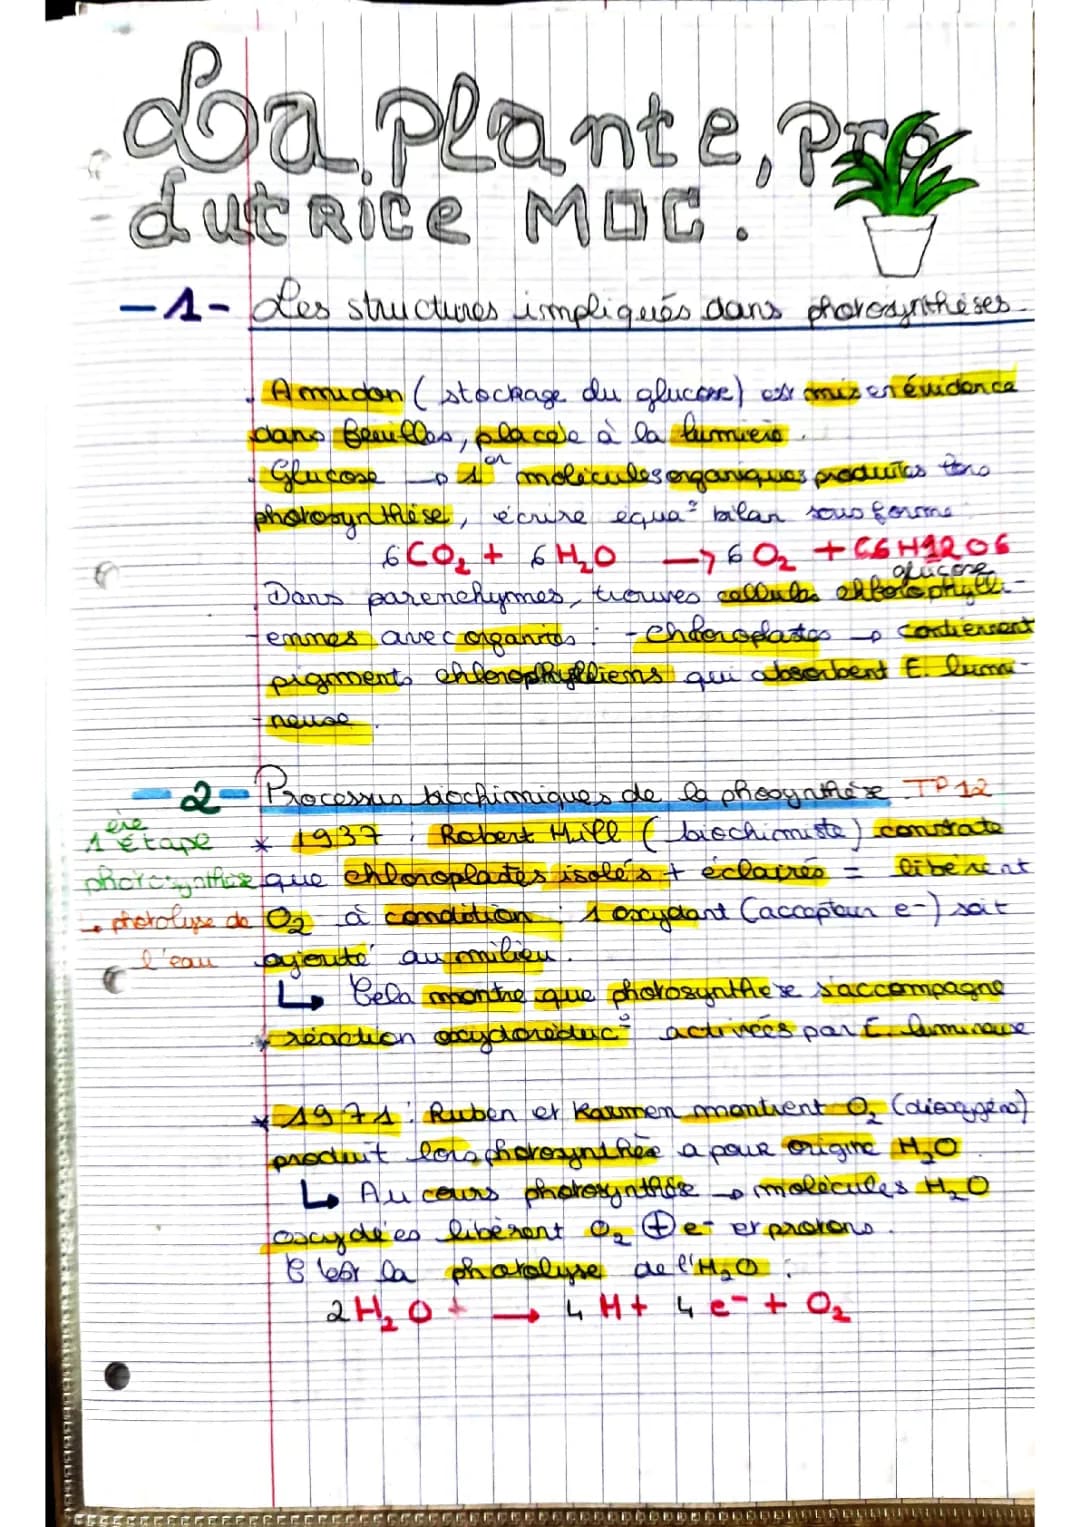 La plante, pro
dutrice MOC.
-1- Les structures impliqués dans photosynthèses
Amidon (stockage du glucose) est mis en évidence
dans feuilles, placée à la lumière.
Glucose → 1er molécules organiques produites lors
photosynthèse, écrire équa° bilan sous forme
6CO2 + 6H2O → 6O2 + C6H12O6
glucose
Dans parenchymes, trouves cellules chlorophylli-
ennes avec organites : - chloroplastes → contiennent
pigments chlorophylliens qui absorbent E. lumi-
neuse.
-2- Processus biochimiques de la phosynthèse TP12
1ère étape
photosynthèse
→ photolyse de
l'eau
* 1937 : Robert Hill (biochimiste) constate
que chloroplastes isolés + éclairés = libèrent
O2 à condition : 1 oxydant (accepteur e-) soit
ajouté au milieu.
↳ Cela montre que photosynthèse s'accompagne
réaction oxydoréduc° activées par E. lumineuse
* 1971 : Ruben et Kamen montrent O2 (dioxygène)
produit lors photosynthèse a pour origine H2O
↳ Au cours photosynthèse → molécules H2O
oxydées libèrent O2 ⊕ e- et protons.
C'est la photolyse de l'H2O :
2H2O + → 4 H+ 4 e- + O2